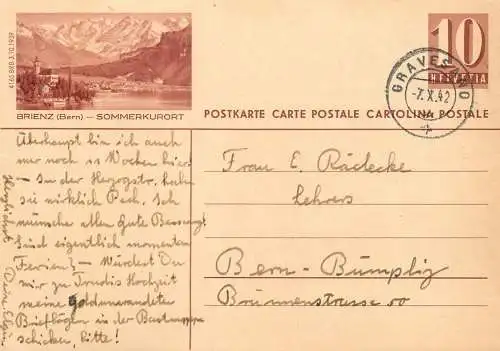 4165 BRB 3.10.1939
BRIENZ (Bern) — SOMMERKURORT
10
HELVETIA
GRAVESANO
-7.X.42
POSTKARTE CARTE POSTALE CARTOLINA POSTALE
Überhaupt bin ich auch
nur noch 11 Wochen hier!
— In der Herzogstr. haben
sie wirklich Pech. Ich
wünsche allen gute Besserung!
Sind eigentlich momentan
Ferien? — Würdest Du
mir zu Trudis Hochzeit
meine goldumrandeten
Briefbögen in der
schicken, bitte!
Herzlichst Deine
Frau E. Rädecke
Lehrers
Bern-Bümpliz
Brünnenstrasse 00